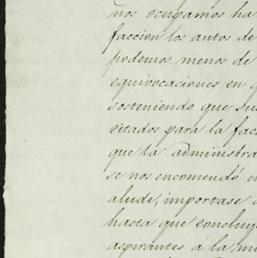 nos ocupamos ha
faccion los autos de
podemos menos de
equivocaciones en
sosteniendo que su
citados para la fac
que la administra
se nos encomendó e
alude, importase
hasta que concluy
aspirantes á la m